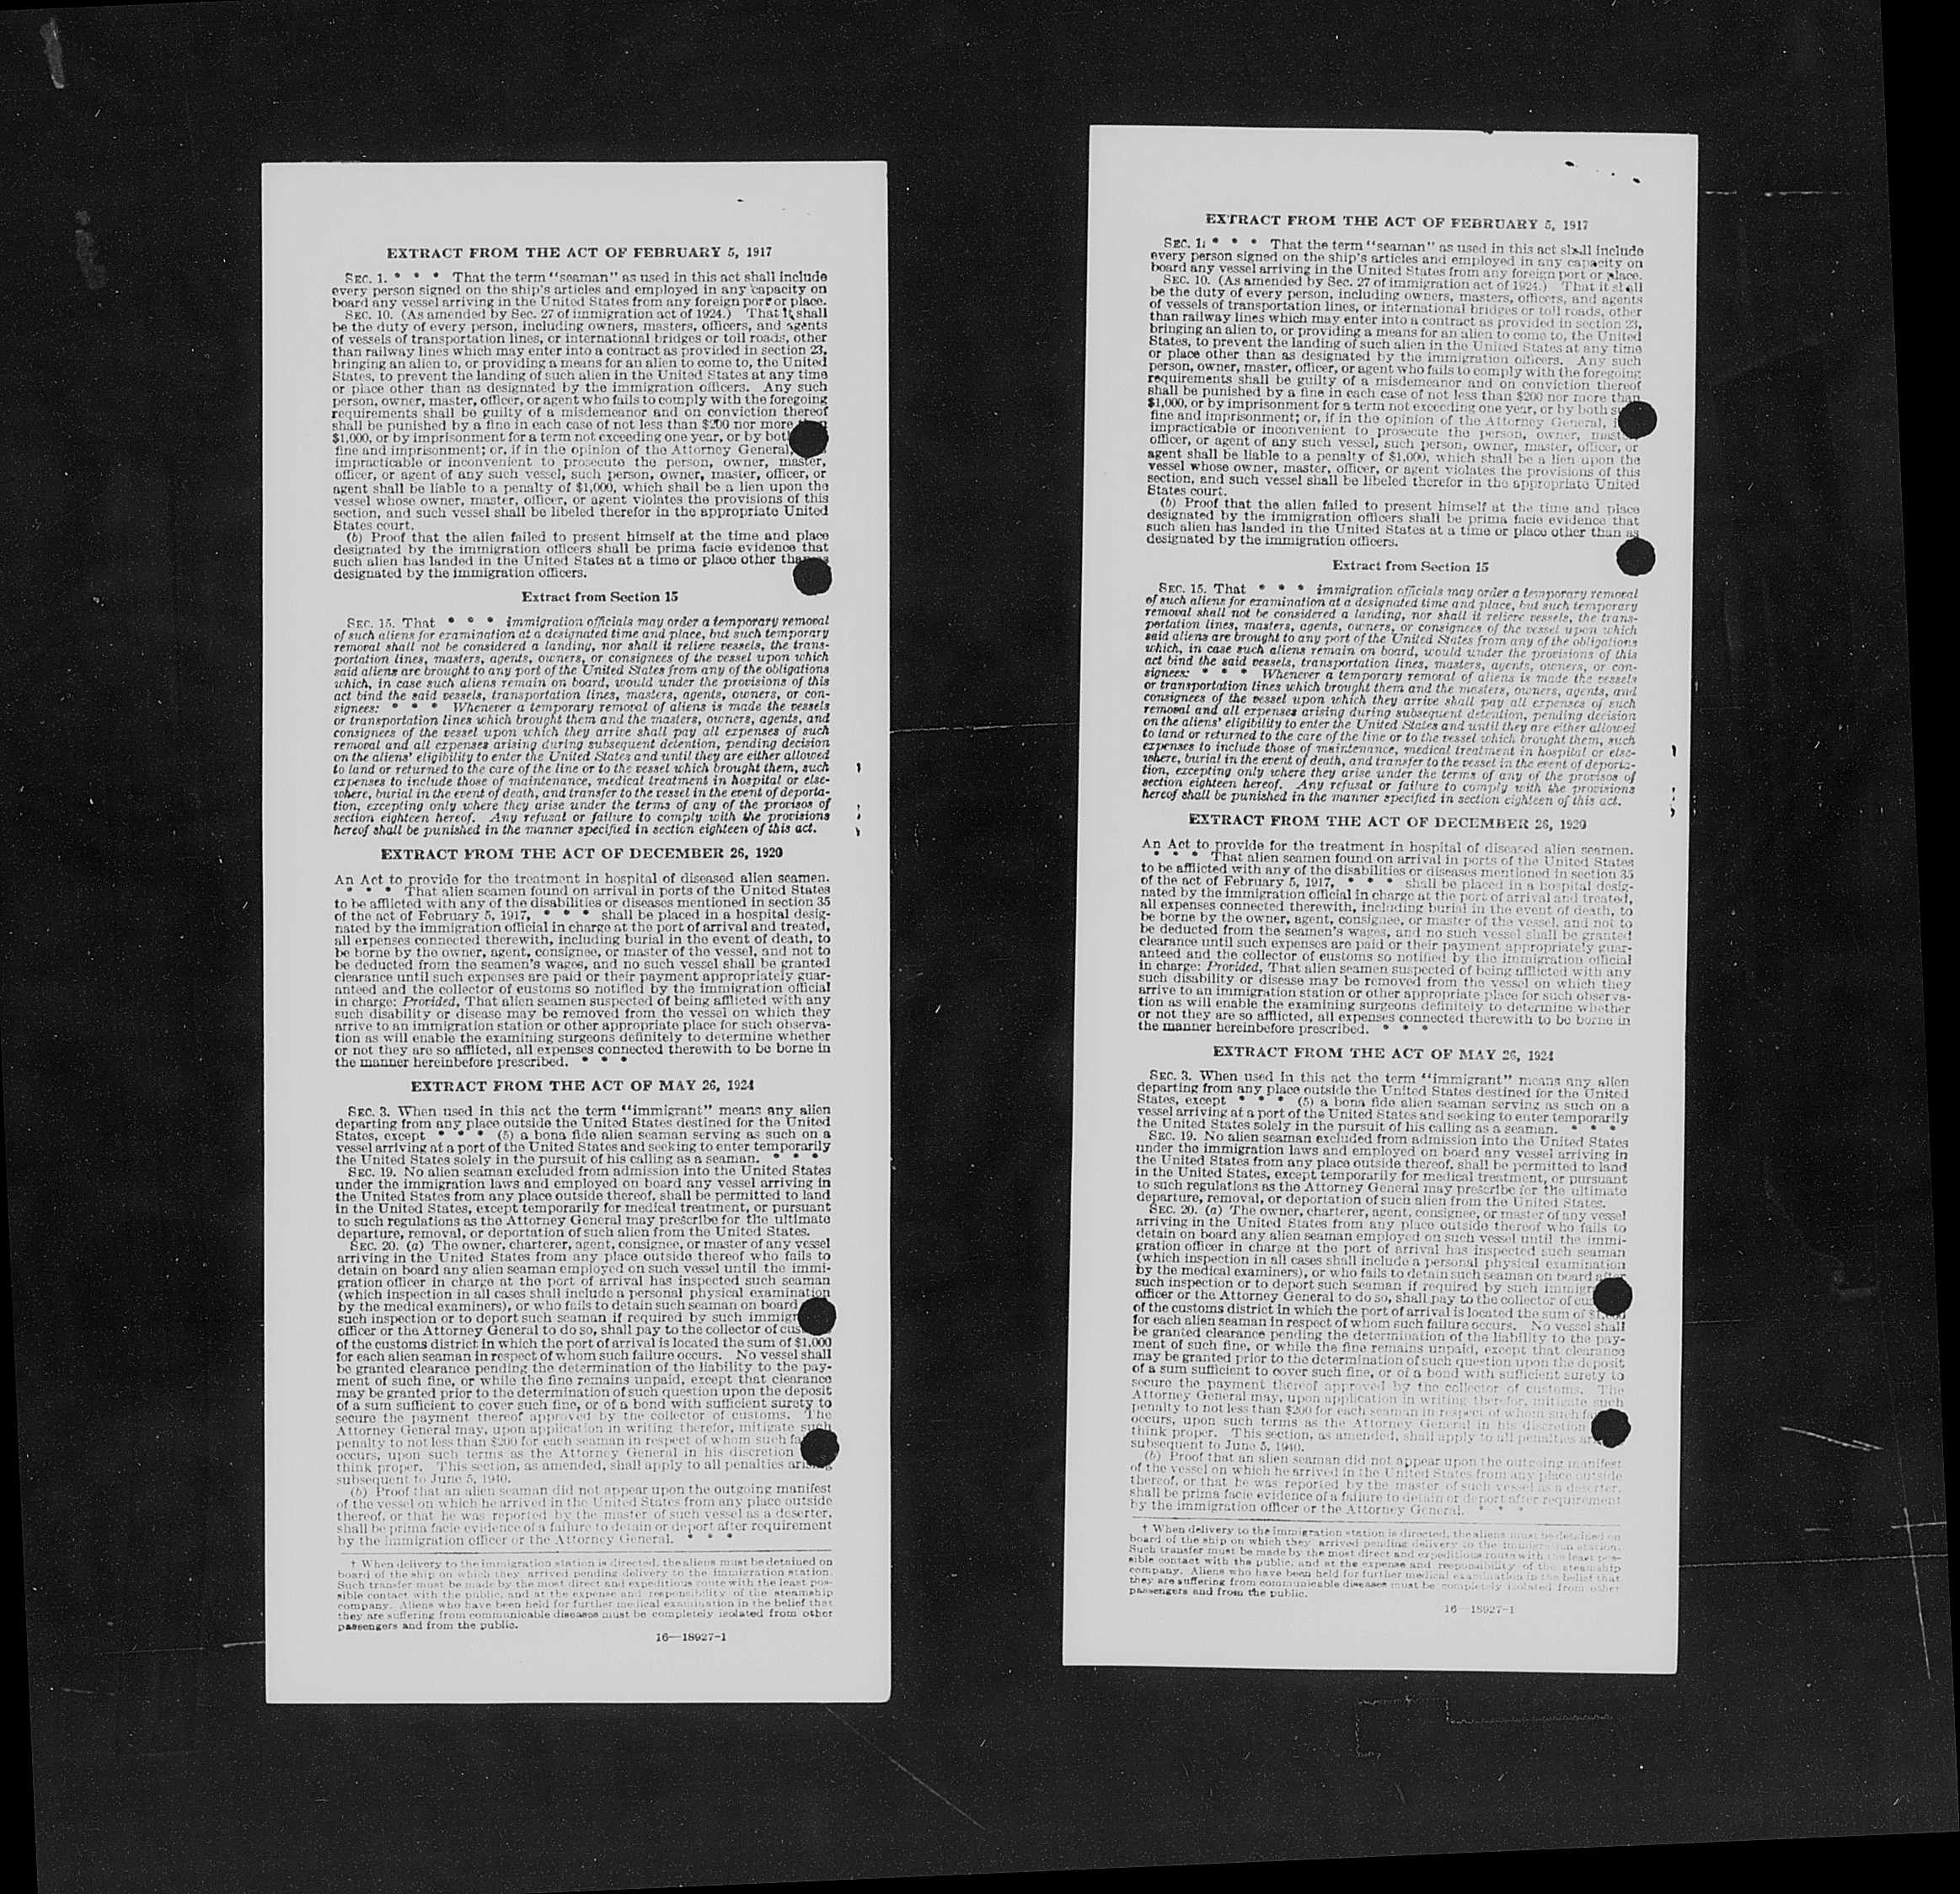 EXTRACT FROM THE ACT OF FEBRUARY 5, 1917
SEC. 1. * * * That the term "seaman" as used in this act shall include
every person signed on the ship's articles and employed in any capacity on
board any vessel arriving in the United States from any foreign port or place.
SEC. 10. (As amended by Sec. 27 of immigration act of 1924.) That it shall
be the duty of every person, including owners, masters, officers, and agents
of vessels of transportation lines, or international bridges or toll roads, other
than railway lines which may enter into a contract as provided in section 23,
bringing an alien to, or providing a means for an alien to come to, the United
States, to prevent the landing of such alien in the United States at any time
or place other than as designated by the immigration officers. Any such
person, owner, master, officer, or agent who fails to comply with the foregoing
requirements shall be guilty of a misdemeanor and on conviction thereof
shall be punished by a fine in each case of not less than $200 nor more
$1,000, or by imprisonment for a term not exceeding one year, or by both
fine and imprisonment; or, if in the opinion of the Attorney General,
impracticable or inconvenient to prosecute the person, owner, master,
officer, or agent of any such vessel, such person, owner, master, officer, or
agent shall be liable to a penalty of $1,000, which shall be a lien upon the
vessel whose owner, master, officer, or agent violates the provisions of this
section, and such vessel shall be libeled therefor in the appropriate United
States court.
(b) Proof that the alien failed to present himself at the time and place
designated by the immigration officers shall be prima facie evidence that
such alien has landed in the United States at a time or place other than
designated by the immigration officers.
Extract from Section 15
SEC. 15. That * * * immigration officials may order a temporary removal
of such aliens for examination at a designated time and place, but such temporary
removal shall not be considered a landing, nor shall it relieve vessels, the trans-
portation lines, masters, agents, owners, or consignees of the vessel upon which
said aliens are brought to any port of the United States from any of the obligations
which, in case such aliens remain on board, would under the provisions of this
act bind the said vessels, transportation lines, masters, agents, owners, or con-
signees: * * * Whenever a temporary removal of aliens is made the vessels
or transportation lines which brought them and the masters, owners, agents, and
consignees of the vessel upon which they arrive shall pay all expenses of such
removal and all expenses arising during subsequent detention, pending decision
on the aliens' eligibility to enter the United States and until they are either allowed
to land or returned to the care of the line or to the vessel which brought them, such
expenses to include those of maintenance, medical treatment in hospital or else-
where, burial in the event of death, and transfer to the vessel in the event of deporta-
tion, excepting only where they arise under the terms of any of the provisos of
section eighteen hereof. Any refusal or failure to comply with the provisions
hereof shall be punished in the manner specified in section eighteen of this act.
EXTRACT FROM THE ACT OF DECEMBER 26, 1920
An Act to provide for the treatment in hospital of diseased alien seamen.
* * * That alien seamen found on arrival in ports of the United States
to be afflicted with any of the disabilities or diseases mentioned in section 35
of the act of February 5, 1917, * * * shall be placed in a hospital desig-
nated by the immigration official in charge at the port of arrival and treated,
all expenses connected therewith, including burial in the event of death, to
be borne by the owner, agent, consignee, or master of the vessel, and not to
be deducted from the seamen's wages, and no such vessel shall be granted
clearance until such expenses are paid or their payment appropriately guar-
anteed and the collector of customs so notified by the immigration official
in charge: Provided, That alien seamen suspected of being afflicted with any
such disability or disease may be removed from the vessel on which they
arrive to an immigration station or other appropriate place for such observa-
tion as will enable the examining surgeons definitely to determine whether
or not they are so afflicted, all expenses connected therewith to be borne in
the manner hereinbefore prescribed. * * *
EXTRACT FROM THE ACT OF MAY 26, 1924
SEC. 3. When used in this act the term "immigrant" means any alien
departing from any place outside the United States destined for the United
States, except * * * (5) a bona fide alien seaman serving as such on a
vessel arriving at a port of the United States and seeking to enter temporarily
the United States solely in the pursuit of his calling as a seaman. * * *
SEC. 19. No alien seaman excluded from admission into the United States
under the immigration laws and employed on board any vessel arriving in
the United States from any place outside thereof, shall be permitted to land
in the United States, except temporarily for medical treatment, or pursuant
to such regulations as the Attorney General may prescribe for the ultimate
departure, removal, or deportation of such alien from the United States.
SEC. 20. (a) The owner, charterer, agent, consignee, or master of any vessel
arriving in the United States from any place outside thereof who fails to
detain on board any alien seaman employed on such vessel until the immi-
gration officer in charge at the port of arrival has inspected such seaman
(which inspection in all cases shall include a personal physical examination
by the medical examiners), or who fails to detain such seaman on board
such inspection or to deport such seaman if required by such immigr
officer or the Attorney General to do so, shall pay to the collector of cus
of the customs district in which the port of arrival is located the sum of $1,000
for each alien seaman in respect of whom such failure occurs. No vessel shall
be granted clearance pending the determination of the liability to the pay-
ment of such fine, or while the fine remains unpaid, except that clearance
may be granted prior to the determination of such question upon the deposit
of a sum sufficient to cover such fine, or of a bond with sufficient surety to
secure the payment thereof approved by the collector of customs. The
Attorney General may, upon application in writing therefor, mitigate such
penalty to not less than $200 for each seaman in respect of whom such fa
occurs, upon such terms as the Attorney General in his discretion
think proper. This section, as amended, shall apply to all penalties arising
subsequent to June 5, 1940.
(b) Proof that an alien seaman did not appear upon the outgoing manifest
of the vessel on which he arrived in the United States from any place outside
thereof, or that he was reported by the master of such vessel as a deserter,
shall be prima facie evidence of a failure to detain or deport after requirement
by the immigration officer or the Attorney General. * * *
† When delivery to the immigration station is directed, the aliens must be detained on
board of the ship on which they arrived pending delivery to the immigration station.
Such transfer must be made by the most direct and expeditious route with the least pos-
sible contact with the public, and at the expense and responsibility of the steamship
company. Aliens who have been held for further medical examination in the belief that
they are suffering from communicable diseases must be completely isolated from other
passengers and from the public.
16—18927-1
EXTRACT FROM THE ACT OF FEBRUARY 5, 1917
SEC. 1. * * * That the term "seaman" as used in this act shall include
every person signed on the ship's articles and employed in any capacity on
board any vessel arriving in the United States from any foreign port or place.
SEC. 10. (As amended by Sec. 27 of immigration act of 1924.) That it shall
be the duty of every person, including owners, masters, officers, and agents
of vessels of transportation lines, or international bridges or toll roads, other
than railway lines which may enter into a contract as provided in section 23,
bringing an alien to, or providing a means for an alien to come to, the United
States, to prevent the landing of such alien in the United States at any time
or place other than as designated by the immigration officers. Any such
person, owner, master, officer, or agent who fails to comply with the foregoing
requirements shall be guilty of a misdemeanor and on conviction thereof
shall be punished by a fine in each case of not less than $200 nor more than
$1,000, or by imprisonment for a term not exceeding one year, or by both
fine and imprisonment; or, if in the opinion of the Attorney General,
impracticable or inconvenient to prosecute the person, owner, master,
officer, or agent of any such vessel, such person, owner, master, officer, or
agent shall be liable to a penalty of $1,000, which shall be a lien upon the
vessel whose owner, master, officer, or agent violates the provisions of this
section, and such vessel shall be libeled therefor in the appropriate United
States court.
(b) Proof that the alien failed to present himself at the time and place
designated by the immigration officers shall be prima facie evidence that
such alien has landed in the United States at a time or place other than as
designated by the immigration officers.
Extract from Section 15
SEC. 15. That * * * immigration officials may order a temporary removal
of such aliens for examination at a designated time and place, but such temporary
removal shall not be considered a landing, nor shall it relieve vessels, the trans-
portation lines, masters, agents, owners, or consignees of the vessel upon which
said aliens are brought to any port of the United States from any of the obligations
which, in case such aliens remain on board, would under the provisions of this
act bind the said vessels, transportation lines, masters, agents, owners, or con-
signees: * * * Whenever a temporary removal of aliens is made the vessels
or transportation lines which brought them and the masters, owners, agents, and
consignees of the vessel upon which they arrive shall pay all expenses of such
removal and all expenses arising during subsequent detention, pending decision
on the aliens' eligibility to enter the United States and until they are either allowed
to land or returned to the care of the line or to the vessel which brought them, such
expenses to include those of maintenance, medical treatment in hospital or else-
where, burial in the event of death, and transfer to the vessel in the event of deporta-
tion, excepting only where they arise under the terms of any of the provisos of
section eighteen hereof. Any refusal or failure to comply with the provisions
hereof shall be punished in the manner specified in section eighteen of this act.
EXTRACT FROM THE ACT OF DECEMBER 26, 1920
An Act to provide for the treatment in hospital of diseased alien seamen.
* * * That alien seamen found on arrival in ports of the United States
to be afflicted with any of the disabilities or diseases mentioned in section 35
of the act of February 5, 1917, * * * shall be placed in a hospital desig-
nated by the immigration official in charge at the port of arrival and treated,
all expenses connected therewith, including burial in the event of death, to
be borne by the owner, agent, consignee, or master of the vessel, and not to
be deducted from the seamen's wages, and no such vessel shall be granted
clearance until such expenses are paid or their payment appropriately guar-
anteed and the collector of customs so notified by the immigration official
in charge: Provided, That alien seamen suspected of being afflicted with any
such disability or disease may be removed from the vessel on which they
arrive to an immigration station or other appropriate place for such observa-
tion as will enable the examining surgeons definitely to determine whether
or not they are so afflicted, all expenses connected therewith to be borne in
the manner hereinbefore prescribed. * * *
EXTRACT FROM THE ACT OF MAY 26, 1924
SEC. 3. When used in this act the term "immigrant" means any alien
departing from any place outside the United States destined for the United
States, except * * * (5) a bona fide alien seaman serving as such on a
vessel arriving at a port of the United States and seeking to enter temporarily
the United States solely in the pursuit of his calling as a seaman. * * *
SEC. 19. No alien seaman excluded from admission into the United States
under the immigration laws and employed on board any vessel arriving in
the United States from any place outside thereof, shall be permitted to land
in the United States, except temporarily for medical treatment, or pursuant
to such regulations as the Attorney General may prescribe for the ultimate
departure, removal, or deportation of such alien from the United States.
SEC. 20. (a) The owner, charterer, agent, consignee, or master of any vessel
arriving in the United States from any place outside thereof who fails to
detain on board any alien seaman employed on such vessel until the immi-
gration officer in charge at the port of arrival has inspected such seaman
(which inspection in all cases shall include a personal physical examination
by the medical examiners), or who fails to detain such seaman on board after
such inspection or to deport such seaman if required by such immigr
officer or the Attorney General to do so, shall pay to the collector of cus
of the customs district in which the port of arrival is located the sum of $1,000
for each alien seaman in respect of whom such failure occurs. No vessel shall
be granted clearance pending the determination of the liability to the pay-
ment of such fine, or while the fine remains unpaid, except that clearance
may be granted prior to the determination of such question upon the deposit
of a sum sufficient to cover such fine, or of a bond with sufficient surety to
secure the payment thereof approved by the collector of customs. The
Attorney General may, upon application in writing therefor, mitigate such
penalty to not less than $200 for each seaman in respect of whom such fa
occurs, upon such terms as the Attorney General in his discretion
think proper. This section, as amended, shall apply to all penalties ar
subsequent to June 5, 1940.
(b) Proof that an alien seaman did not appear upon the outgoing manifest
of the vessel on which he arrived in the United States from any place outside
thereof, or that he was reported by the master of such vessel as a deserter,
shall be prima facie evidence of a failure to detain or deport after requirement
by the immigration officer or the Attorney General. * * *
† When delivery to the immigration station is directed, the aliens must be detained on
board of the ship on which they arrived pending delivery to the immigration station.
Such transfer must be made by the most direct and expeditious route with the least pos-
sible contact with the public, and at the expense and responsibility of the steamship
company. Aliens who have been held for further medical examination in the belief that
they are suffering from communicable diseases must be completely isolated from other
passengers and from the public.
16—18927-1